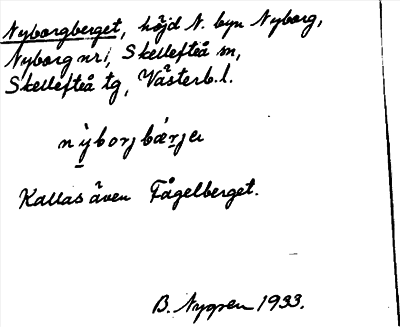 Nyborgberget, höjd N. byn Nyborg,
Nyborg nr 1, Skellefteå m,
Skellefteå tg, Västerb. l.
Kallas även Fågelberget.
B. Nygren 1933.